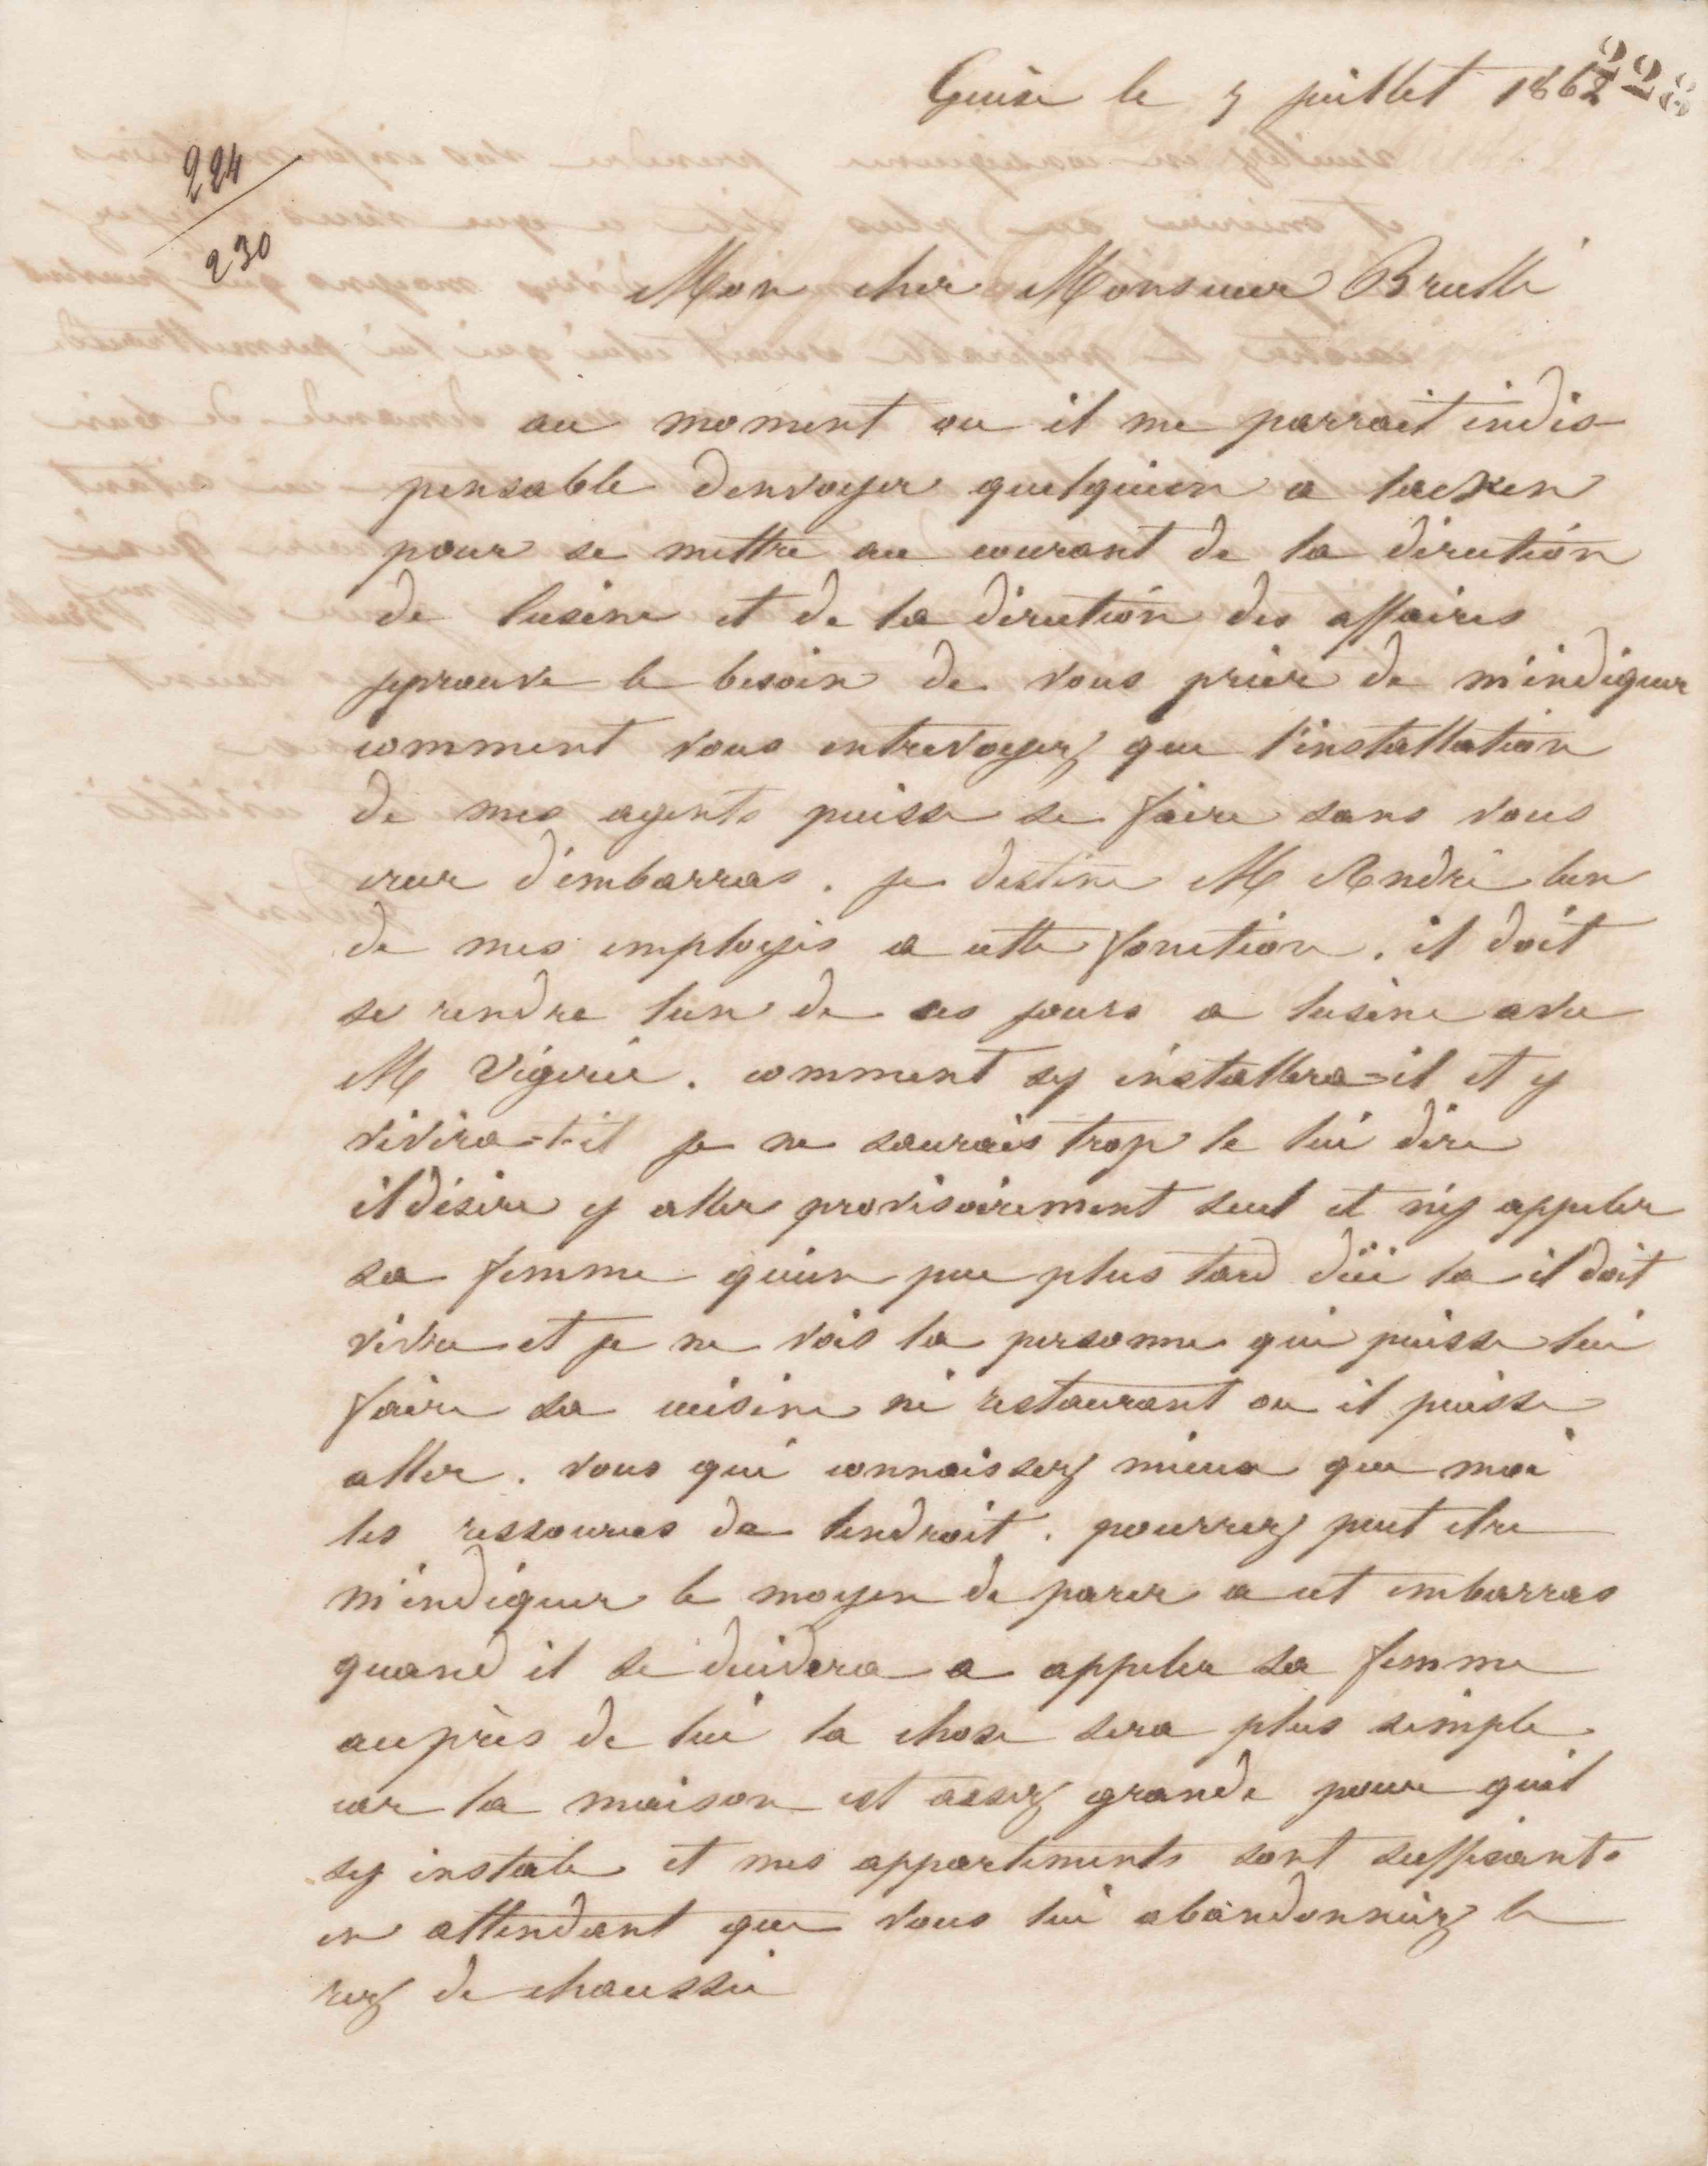 Guise le 5 juillet 1862
228
224
230
Mon cher Monsieur Brullé
au moment ou il me parrait indis
pensable denvoyer quelquun a lacken
pour se mettre au courant de la direction
de lusine et de la direction des affaires
jeprouve le besoin de vous prier de m'indiquer
comment vous entrevoyez que l'installation
de mes agents puisse se faire sans vous
creer d'embarras. je destine M André lun
de mes employés a cette fonction. il doit
se rendre lun de ces jours a lusine avec
M Vigerie. comment sy installera-il et y
vivira-t-il je ne saurais trop le lui dire
il désire y aller provisoirement seul et n'y appeler
sa femme quun peu plus tard dici la il doit
vivre et je ne vois la personne qui puisse lui
faire sa cuisine ni restaurant ou il puisse
aller. vous qui connaissez mieux que moi
les ressources de lendroit. pourrez peut etre
m'indiquer le moyen de parer a cet embarras
quand il se decidera a appeler sa femme
auprès de lui la chose sera plus simple
car la maison est assez grande pour quil
sy instale et mes appartements sont suffisants
en attendant que vous lui abandonniez le
rez de chaussée